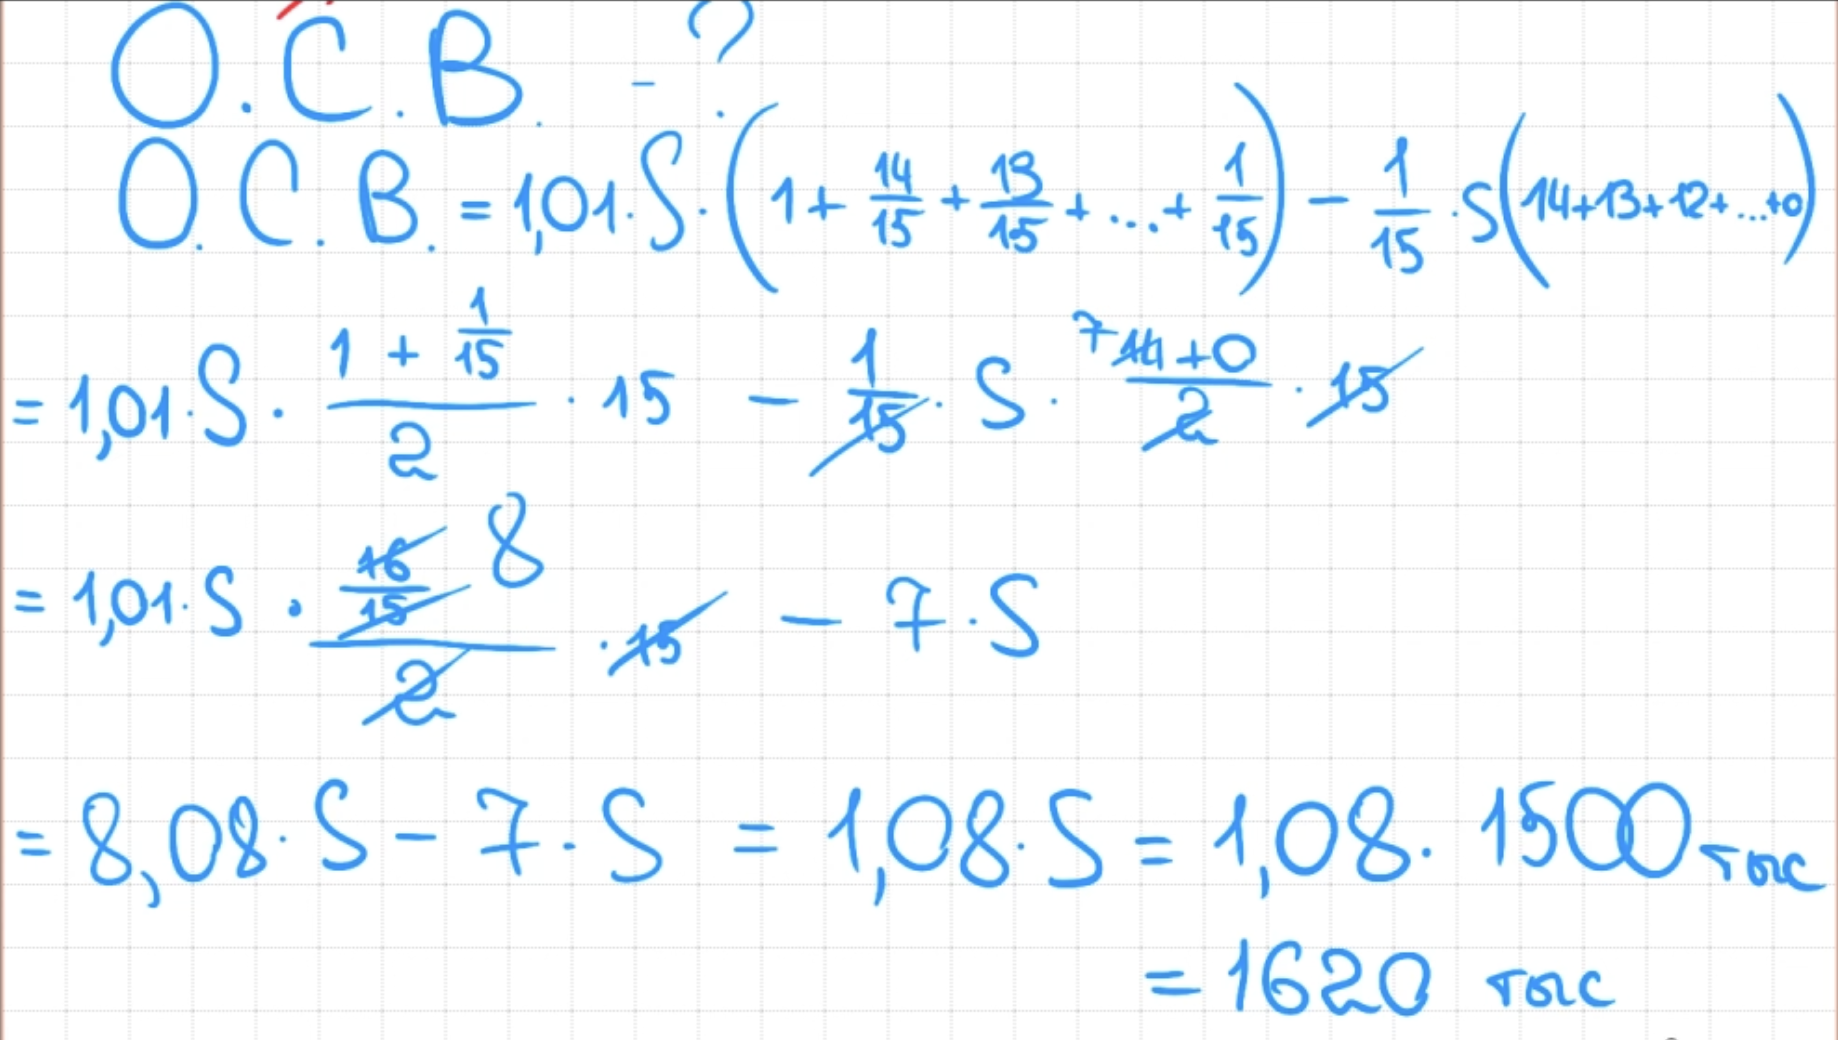 О.С.В. - ?
О.С.В. = 1,01·S·(1 + 14/15 + 13/15 + ... + 1/15) - 1/15·S(14+13+12+...+0)
= 1,01·S·(1 + 1/15)/2 · 15 - 1/15 · S · 7 (14+0)/2 · 15
= 1,01·S · (16/15)/2 8 · 15 - 7·S
= 8,08·S - 7·S = 1,08·S = 1,08·1500 тыс
= 1620 тыс